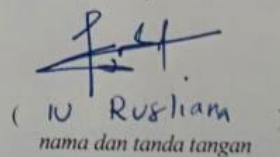 ( IU Rusliana
nama dan tanda tangan